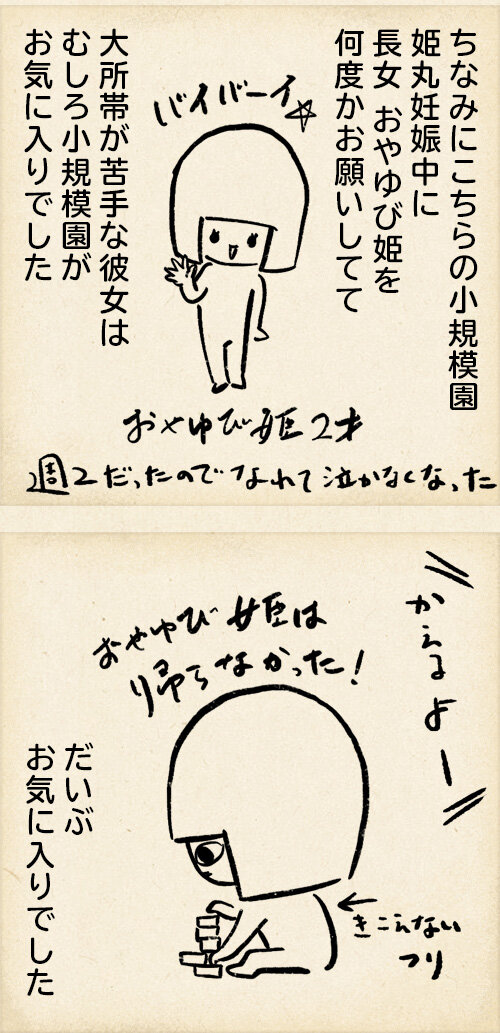 ちなみにこちらの小規模園
姫丸妊娠中に
長女 おやゆび姫を
何度かお願いしてて
バイバーイ☆
大所帯が苦手な彼女は
むしろ小規模園が
お気に入りでした
おやゆび姫2才
週2だったのでなれて泣かなくなった
かえるよー
おやゆび姫は
帰らなかった!
だいぶ
お気に入りでした
←きこえない
フリ